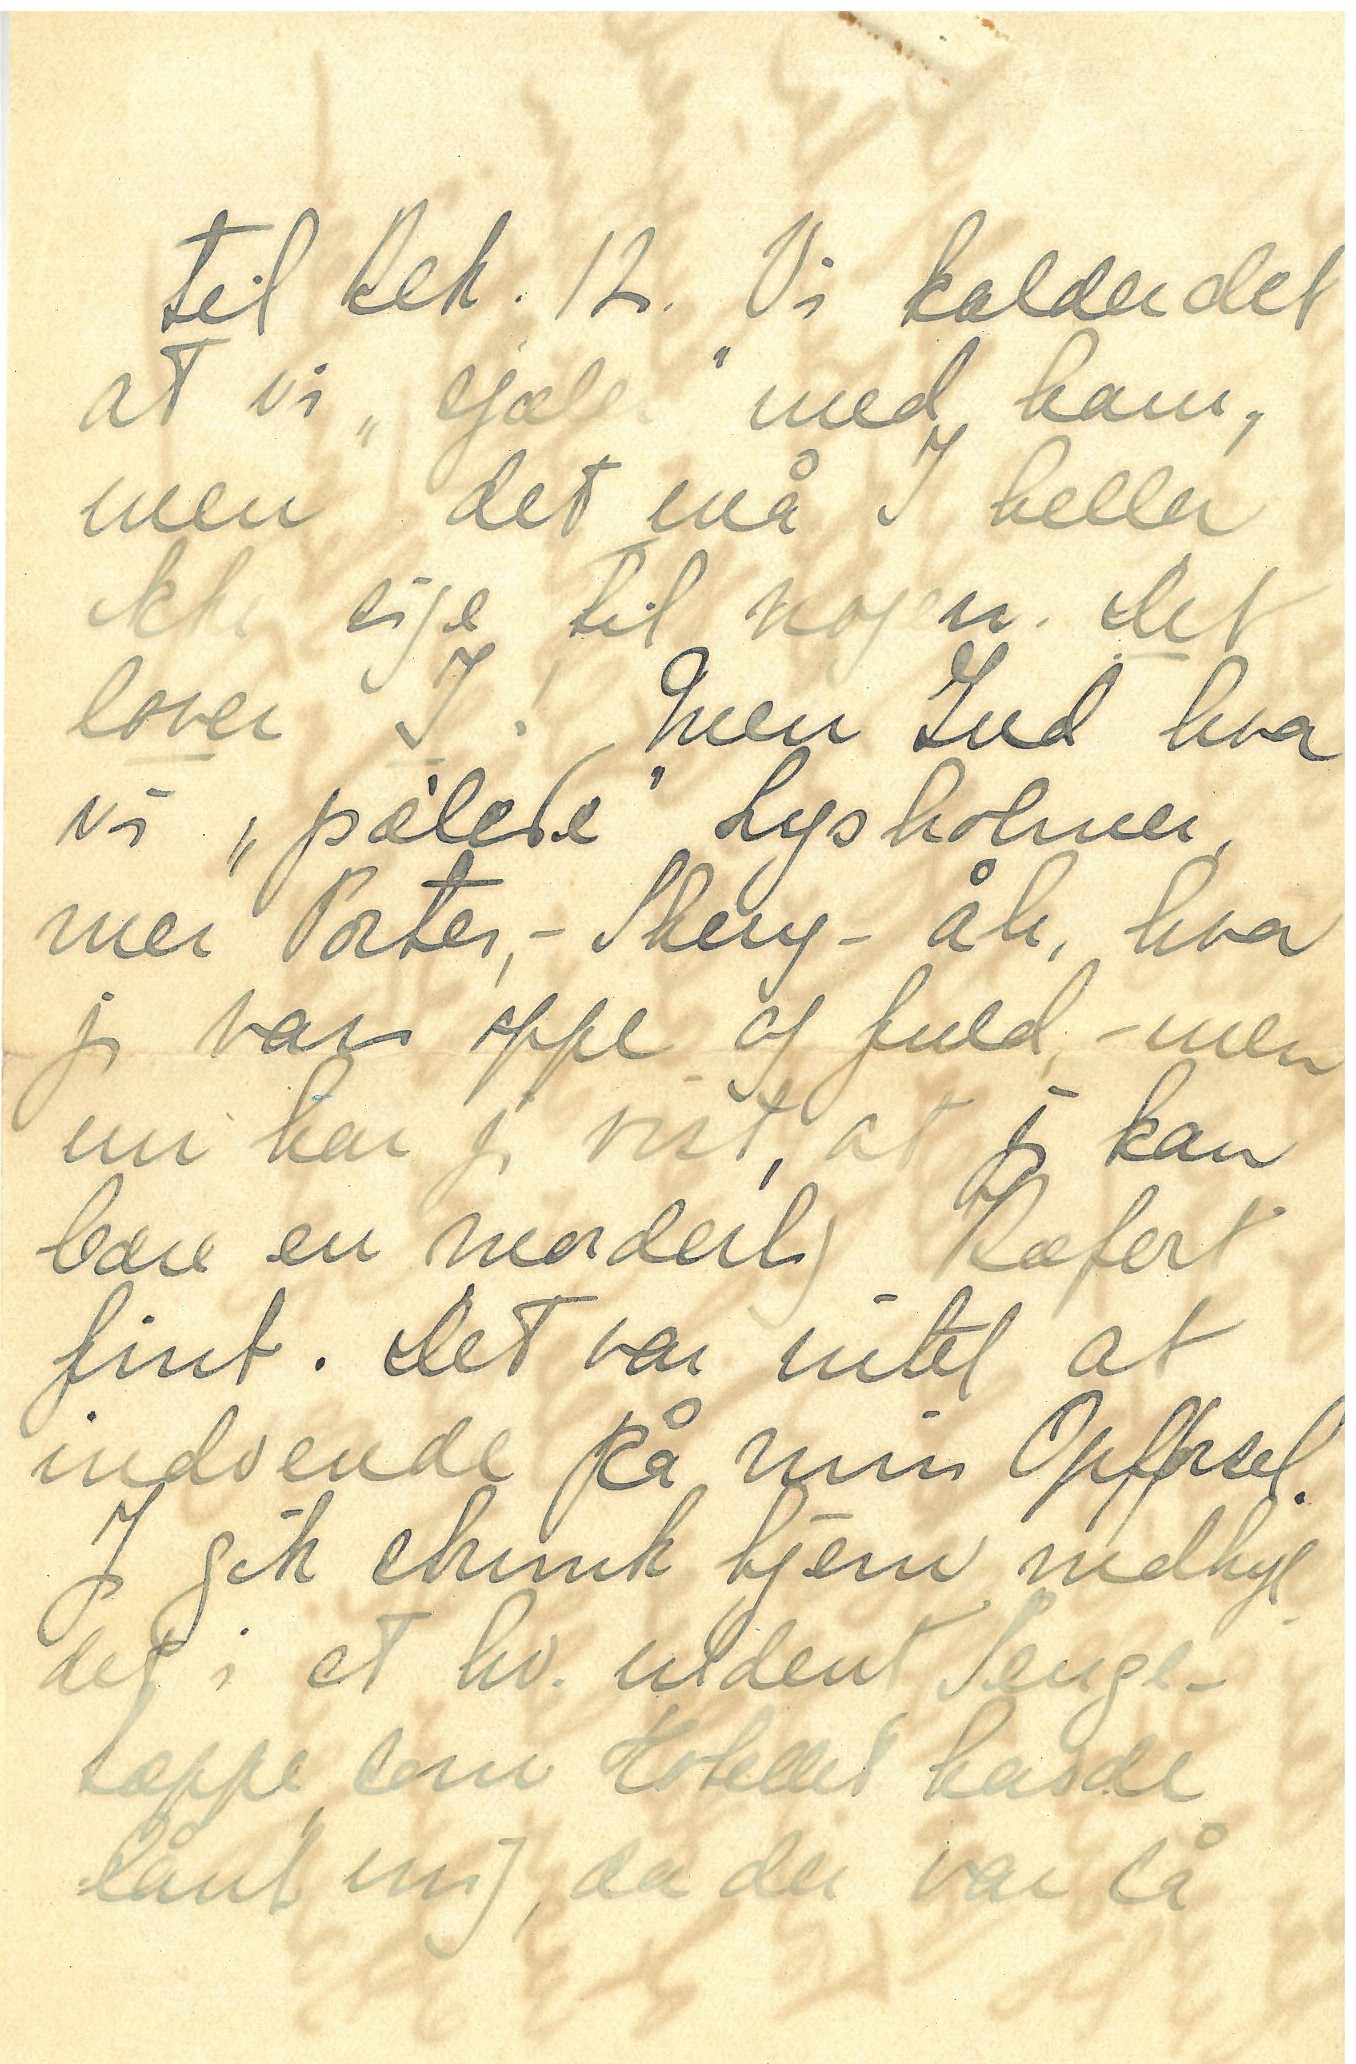 til Kek. 12. Vi kalder det
at vi „sjæler" med ham,
men det må I heller
ikke sige til nogen. Det
lover I! Men Gud hva
vi „pælede" Lysholmer,
mer Porter,- Sherry- åh, hva
j var oppe og fuld,- men
nu har j vist, at j kan
bære en morderlig Kæfert
fint. Det var intet at
indvende på min Opførsel.
J gik smuk hjem indhyl
det i et hv. vident Senge-
tæppe, som Hotellet havde
lånt mij, da der var så